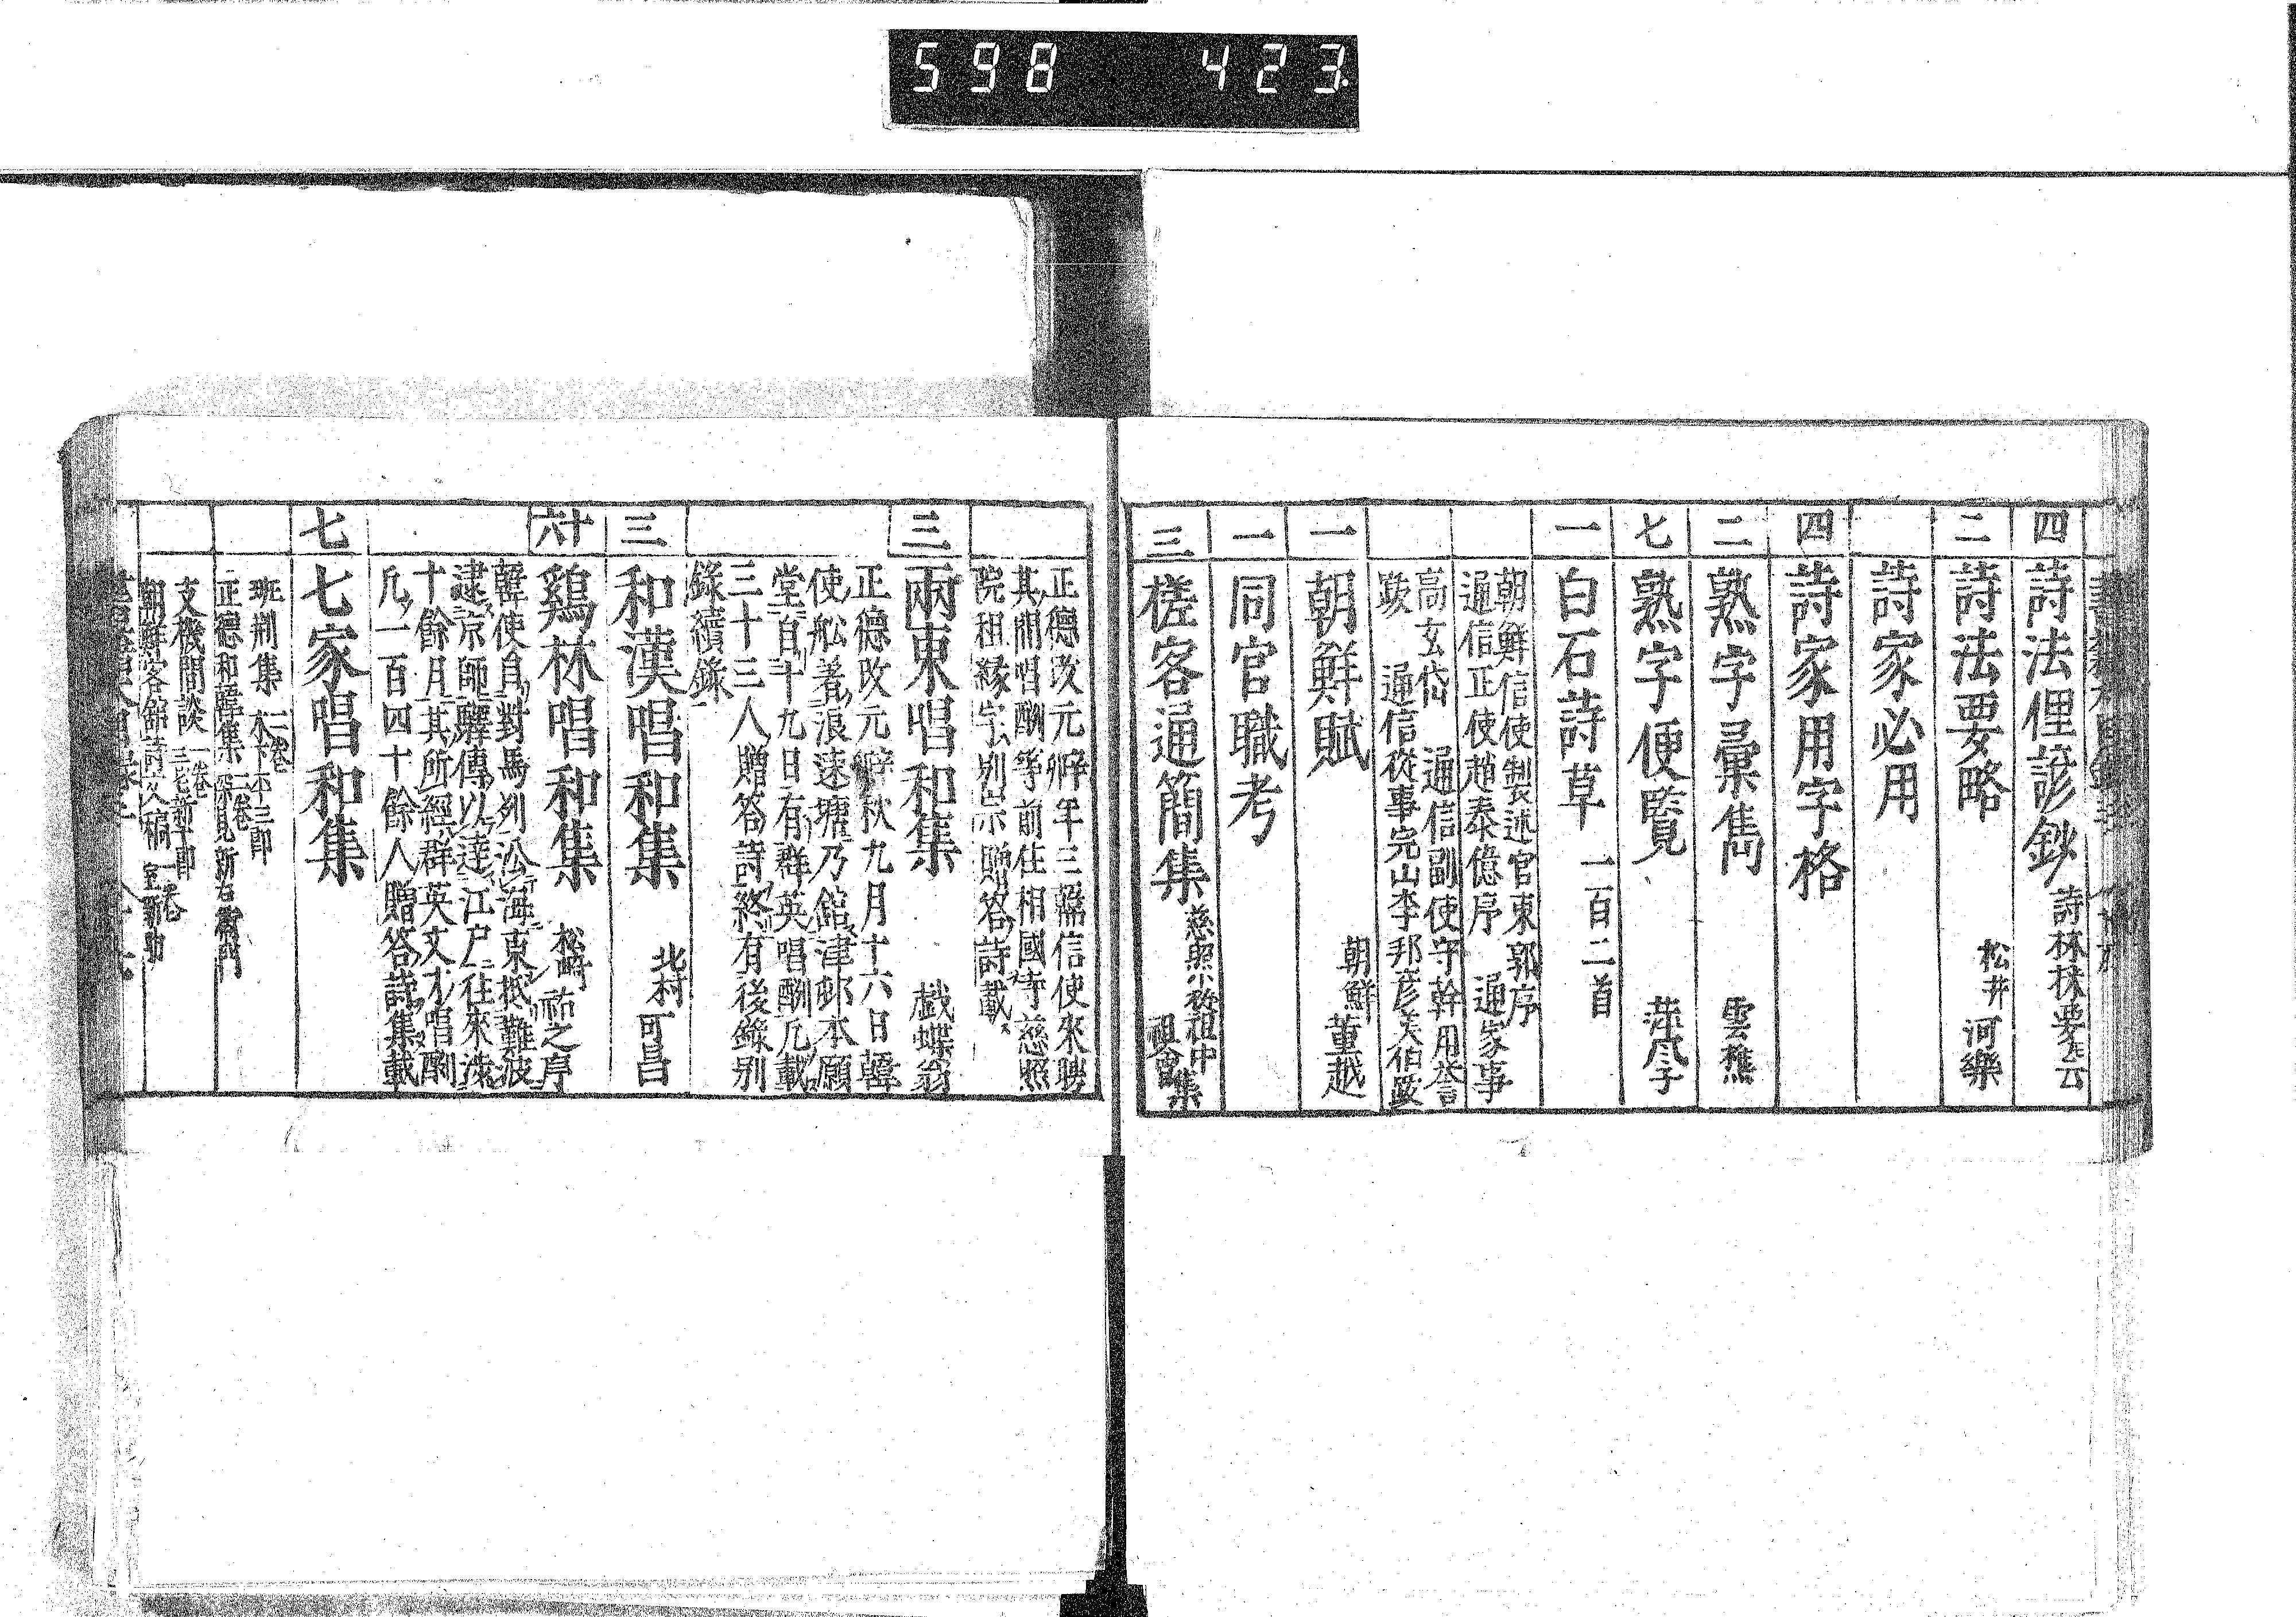 598 423.
四 詩法俚諺鈔 詩林秣要ト云
二 詩法要略 松井河樂
詩家必用
四 詩家用字格
二 熟字彙雋 雲樵
七 熟字便覧
一 白石詩草 一百二首
朝鮮信使製述官東郭序
通信正使趙泰億序 通家事
高玄岱 通信副使守幹用誉
跋 通信從事完山李邦彦美伯跋
一 朝鮮賦 朝鮮董越
一 同官職考
三 槎客通筒集 慈照小祖中 祖曾集
正徳改元辛卯年三韓信使來聘
其間唱酬等前住相國寺慈照
院祖縁ト別宗贈答詩載
三 兩東唱和集 戯蝶翁
正徳改元辛卯秋九月十六日韓
使舩着浪速壖乃舘津邨本願
堂一百十九日有群英唱酬凡載
三十三人贈答詩終有後錄別
錄續錄
三 和漢唱和集 北村可昌
十六 鷄林唱和集 松崎祐之序
韓使自對馬列沿海東抵難波
逮京師驛傳以達江戸往來凑
十餘月其所經群英文才唱酬
凡一百四十餘人贈答詩集載
七 七家唱和集
班荊集 二卷 木下平三郎
正德和韓集 二卷 深見新右衛門
支機間談 一卷 三宅新平郎
朝鮮客舘詩文稿 一卷 室新助